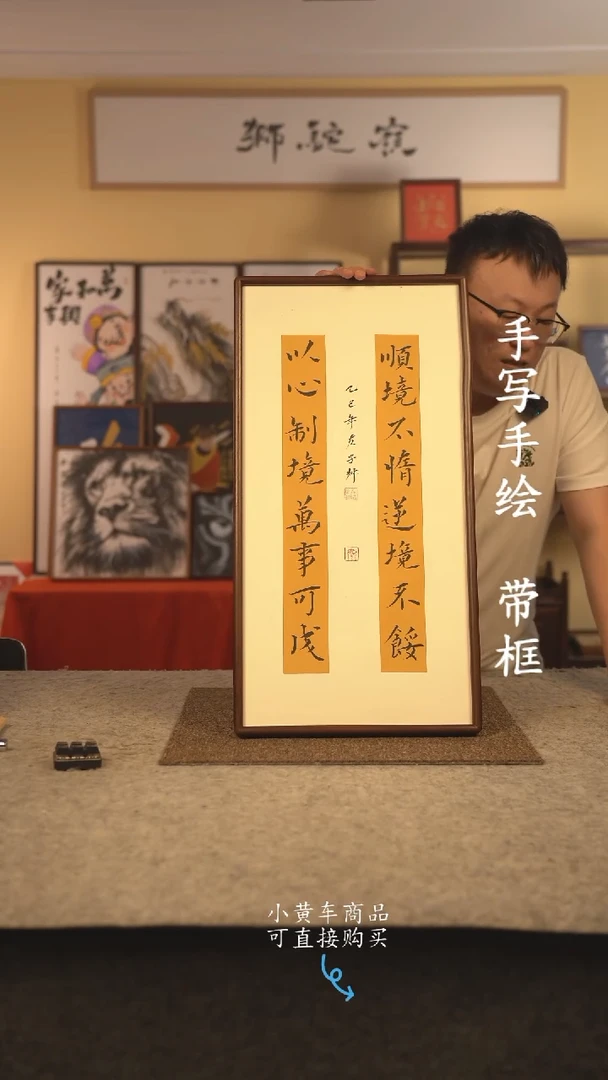 獅駝嶺
萬
家和
事興
順境不惰逆境不餒
以心制境萬事可成
乙巳年
手写手绘 带框
小黄车商品
可直接购买